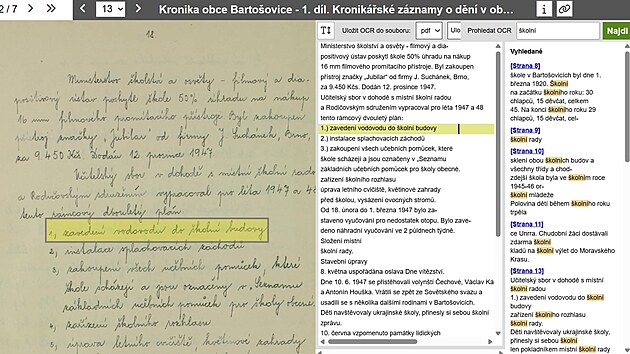 2 / 7
13
Kronika obce Bartošovice - 1. díl. Kronikářské záznamy o dění v ob…
i
12
Ministerstvo školství a osvěty - filmový a dia-
positivový ústav poskytl škole 50% úhradu na nákup
16 mm filmového promítacího přístroje. Byl zakoupen
přístroj značky „Jubilar" od firmy J. Suchánek, Brno,
za 9.450 Kčs. Dodán 12. prosince 1947.
Učitelský sbor v dohodě s místní školní radou
a Rodičovským sdružením vypracoval pro léta 1947 a 48
tento rámcový dvouletý plán:
1.) zavedení vodovodu do školní budovy
2.) instalace splachovacích záchodů
3.) zakoupení všech učebních pomůcek, které
škole scházejí a jsou označeny v „Seznamu
základních učebních pomůcek pro školy obecné.
4.) zařízení školního rozhlasu
5.) úprava letního cvičiště, květinové zahrady
Uložit OCR do souboru:
pdf
Ulo
Prohledat OCR
školní
Najdi
Ministerstvo školství a osvěty - filmový a dia-
positivový ústav poskytl škole 50% úhradu na nákup
16 mm filmového promítacího přístroje. Byl zakoupen
přístroj značky „Jubilar" od firmy J. Suchánek, Brno,
za 9.450 Kčs. Dodán 12. prosince 1947.
Učitelský sbor v dohodě s místní školní radou
a Rodičovským sdružením vypracoval pro léta 1947 a 48
tento rámcový dvouletý plán:
1.) zavedení vodovodu do školní budovy
2.) instalace splachovacích záchodů
3.) zakoupení všech učebních pomůcek, které
škole scházejí a jsou označeny v „Seznamu
základních učebních pomůcek pro školy obecné.
zařízení školního rozhlasu
úprava letního cvičiště, květinové zahrady
před školou, vysázení ovocných stromů.
Od 18. února do 1. března 1947 bylo za-
staveno vyučování pro nedostatek otopu. Bylo zave-
deno náhradní vyučování ve 2 půldnech týdně.
Složení místní
školní rady.
Stavební úpravy
8. května uspořádána oslava Dne vítězství.
Dne 10. 6. 1947 se přistěhovali volyňští Čechové, Václav Ká
a Antonín Houška. Vrátili se zpět ze Sovětského svazu a
usadili se s několika dalšími rodinami v Bartošovicích.
Děti navštěvovaly ukrajinské školy, přinesly si sebou školní
zprávu.
10. června vzpomenuto památky lidických
Vyhledané
[Strana 8]
škole v Bartošovicích byl dne 1.
března 1920. Školní
na začátku školního roku: 30
chlapců, 15 děvčat, celkem
45. Na konci školního roku: 29
chlapců, 15 děvčat, cel-
[Strana 9]
školní rady
[Strana 10]
sklení obou školních budov a
všechny třídy a chod-
zdejší škola byla ve školním roce
1945-46 or-
školní mládeže
Polovina dětí během školního roku
trpěla
[Strana 11]
ce Unrra. Chudobní žáci dostávali
zdarma školní
kladů na školní výlet do Moravského
Krasu.
[Strana 13]
Učitelský sbor v dohodě s místní
školní radou
1.) zavedení vodovodu do školní
budovy
zařízení školního rozhlasu
školní rady.
Děti navštěvovaly ukrajinské školy,
přinesly si sebou školní
len pokladníkem místní školní rady